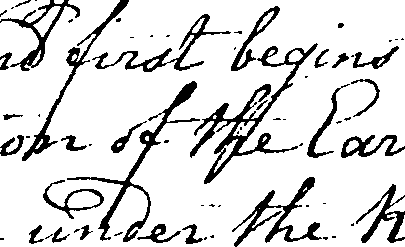 first begins
of the Ear
under the